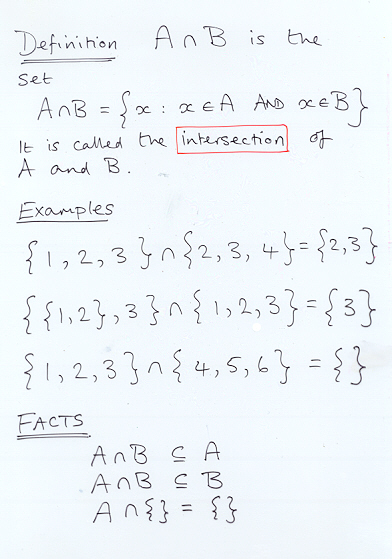 Definition A ∩ B is the
set
A∩B = {x : x ∈ A AND x ∈ B}
It is called the intersection of
A and B.
Examples
{1, 2, 3} ∩ {2, 3, 4} = {2,3}
{{1,2}, 3} ∩ {1, 2, 3} = {3}
{1, 2, 3} ∩ {4, 5, 6} = {}
FACTS
A∩B ⊆ A
A∩B ⊆ B
A∩{} = {}